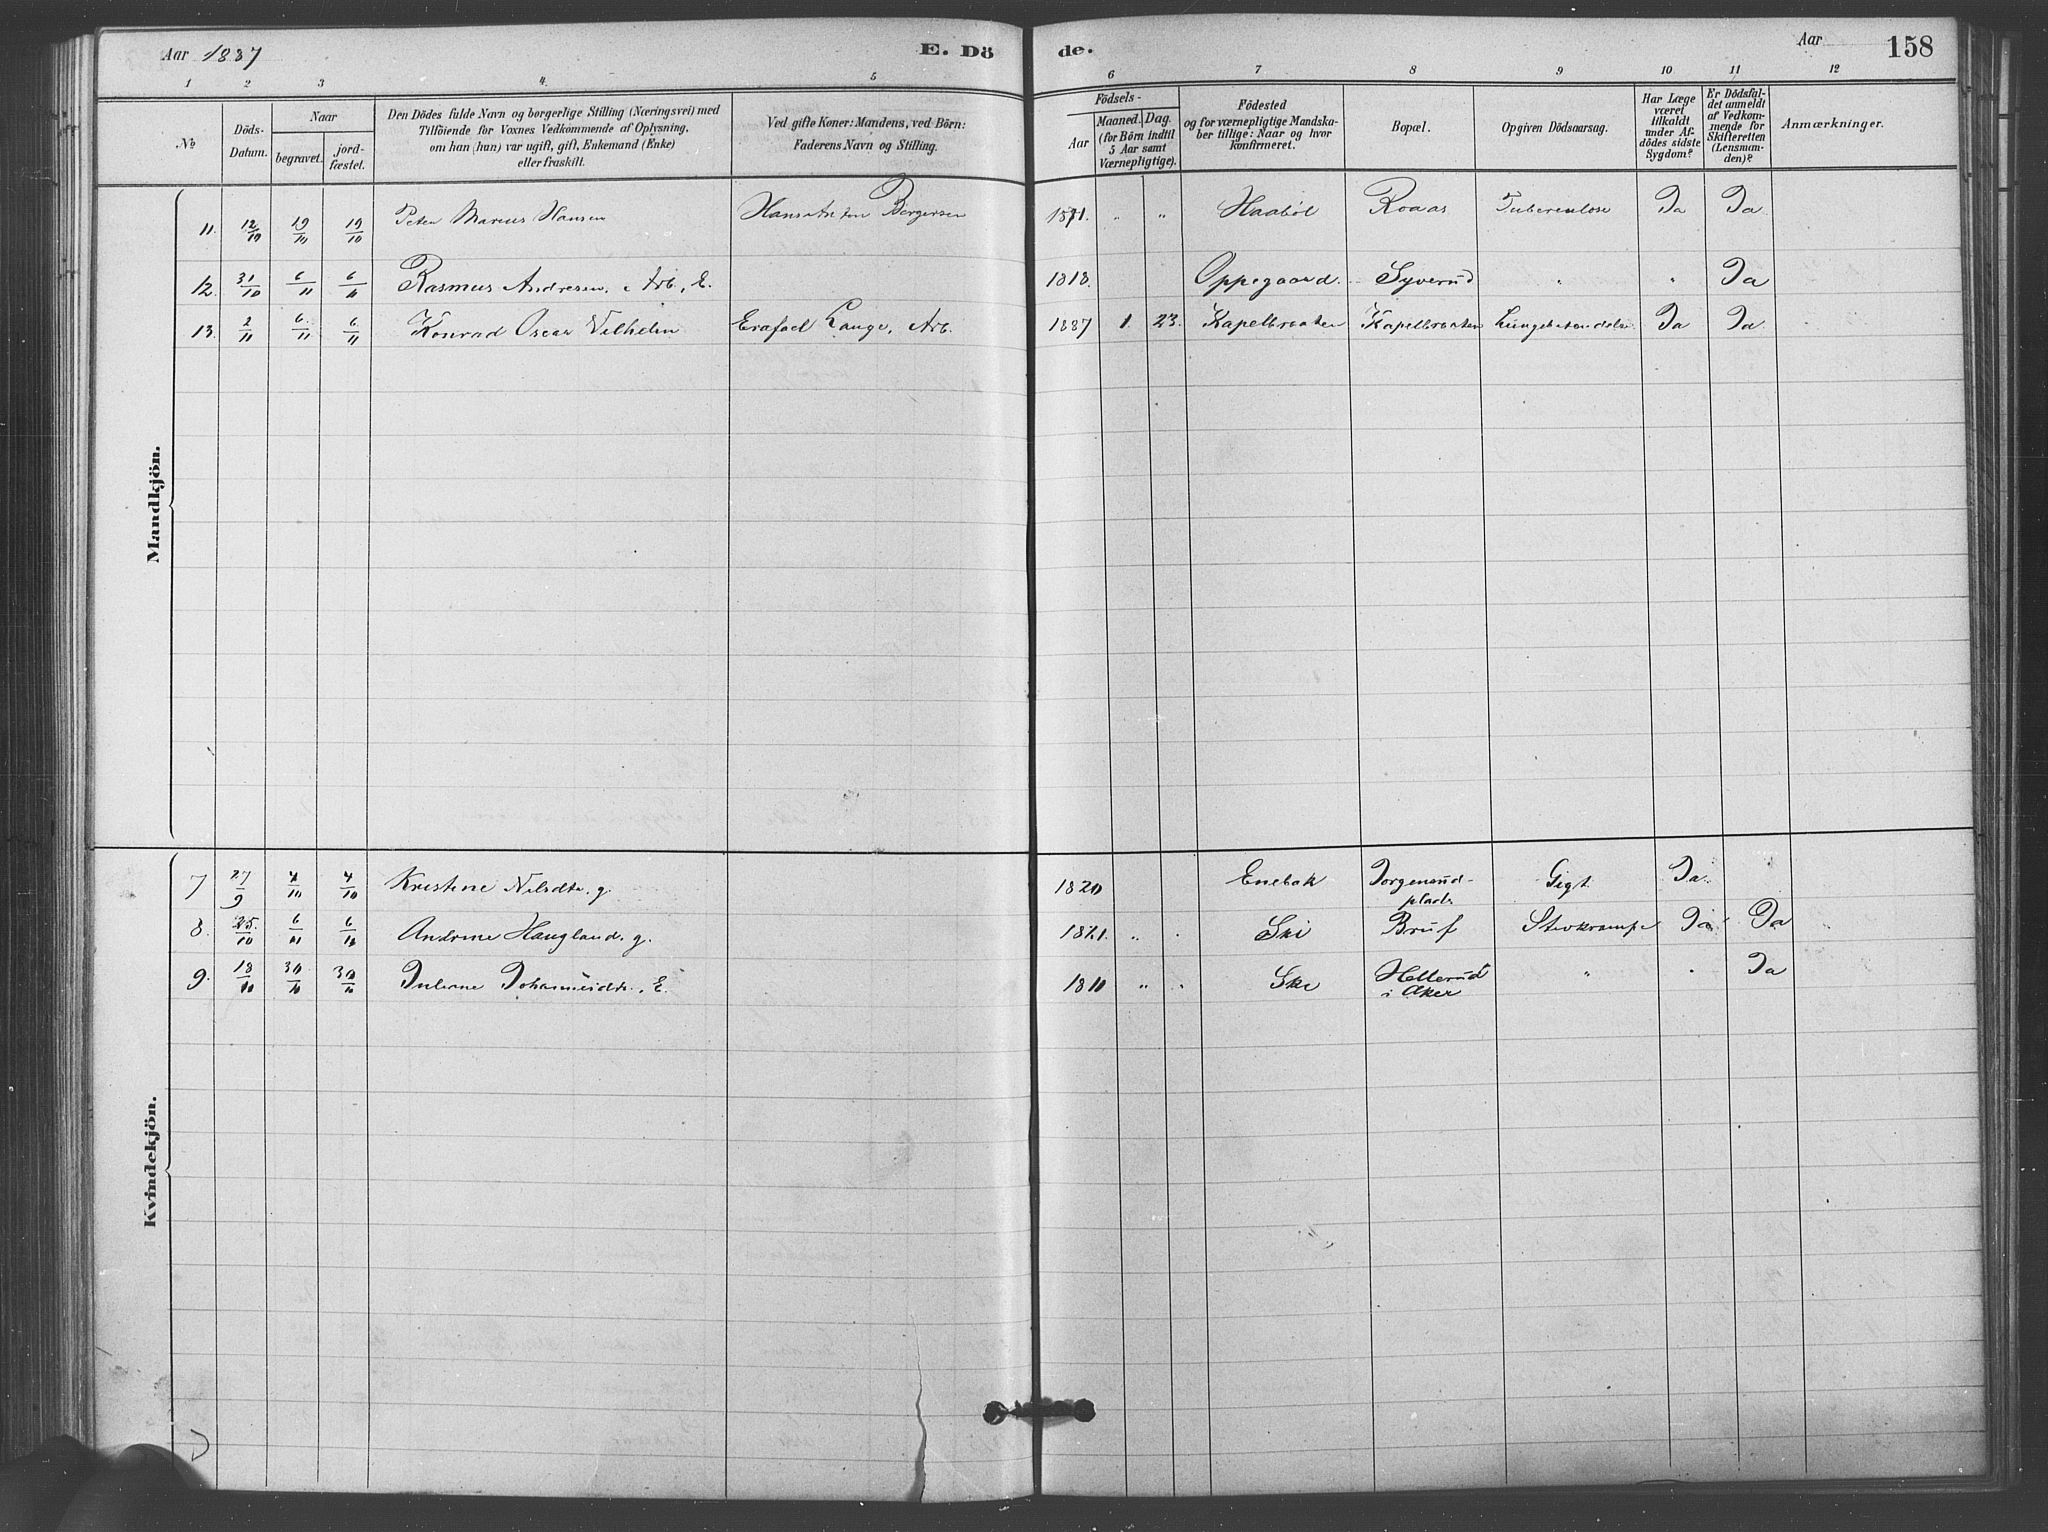 Aar 1887 E. Dö de. Aar 158
1 2 3 4. 5 6 7 8 9 10 11 12
No
Döds-Datum.
Naar
begravet.
jord-fæstet.
Den Dödes fulde Navn og borgerlige Stilling (Næringsvei) med
Tilföiende for Voxnes Vedkommende af Oplysning,
om han (hun) var ugift, gift, Enkemand (Enke)
eller fraskilt.
Ved gifte Koner: Mandens, ved Börn:
Faderens Navn og Stilling.
Födsels-
Aar
Maaned. Dag.
(for Börn indtil
5 Aar samt
Værnepligtige).
Födested
og for værnepligtige Mandska-
ber tillige: Naar og hvor
konfirmeret.
Bopæl.
Opgiven Dödsaarsag.
Har Læge
været
tilkaldt
under Af-
dödes sidste
Sygdom?
Er Dödsfal-
det anmeldt
af Vedkom-
mende for
Skifteretten
(Lensman-
den)?
Anmærkninger.
Mandkjön.
11. 12/10 19/10 19/10 Peter Marius Hansen Hans Anton Børgersen 1871. " " Haabøl Roaas Tuberculose Ja Ja
12. 31/10 6/11 6/11 Rasmus Andresen, Arb., E. 1818. Oppegaard. Syverud " " Ja
13. 2/11 6/11 6/11 Konrad Oscar Vilhelm Erafael Lange, Arb. 1887 1. 23. Kapelbraaten Kapelbraaten Lungebetændelse Ja Ja
Kvindekjön.
7 27/9 4/10 4/10 Kristine Nilsdtr. g. 1820 Enebak Jorgenrud-
plads Gigt Ja
8. 25./10 6/11 6/11 Andrine Haugland. g. 1821. " " Ski Bru Ja Ja
9. 18/10 30/10 30/10 Juliane Johannesdtr., E. 1810 " " Ski Hellerud
i Aker " " Ja